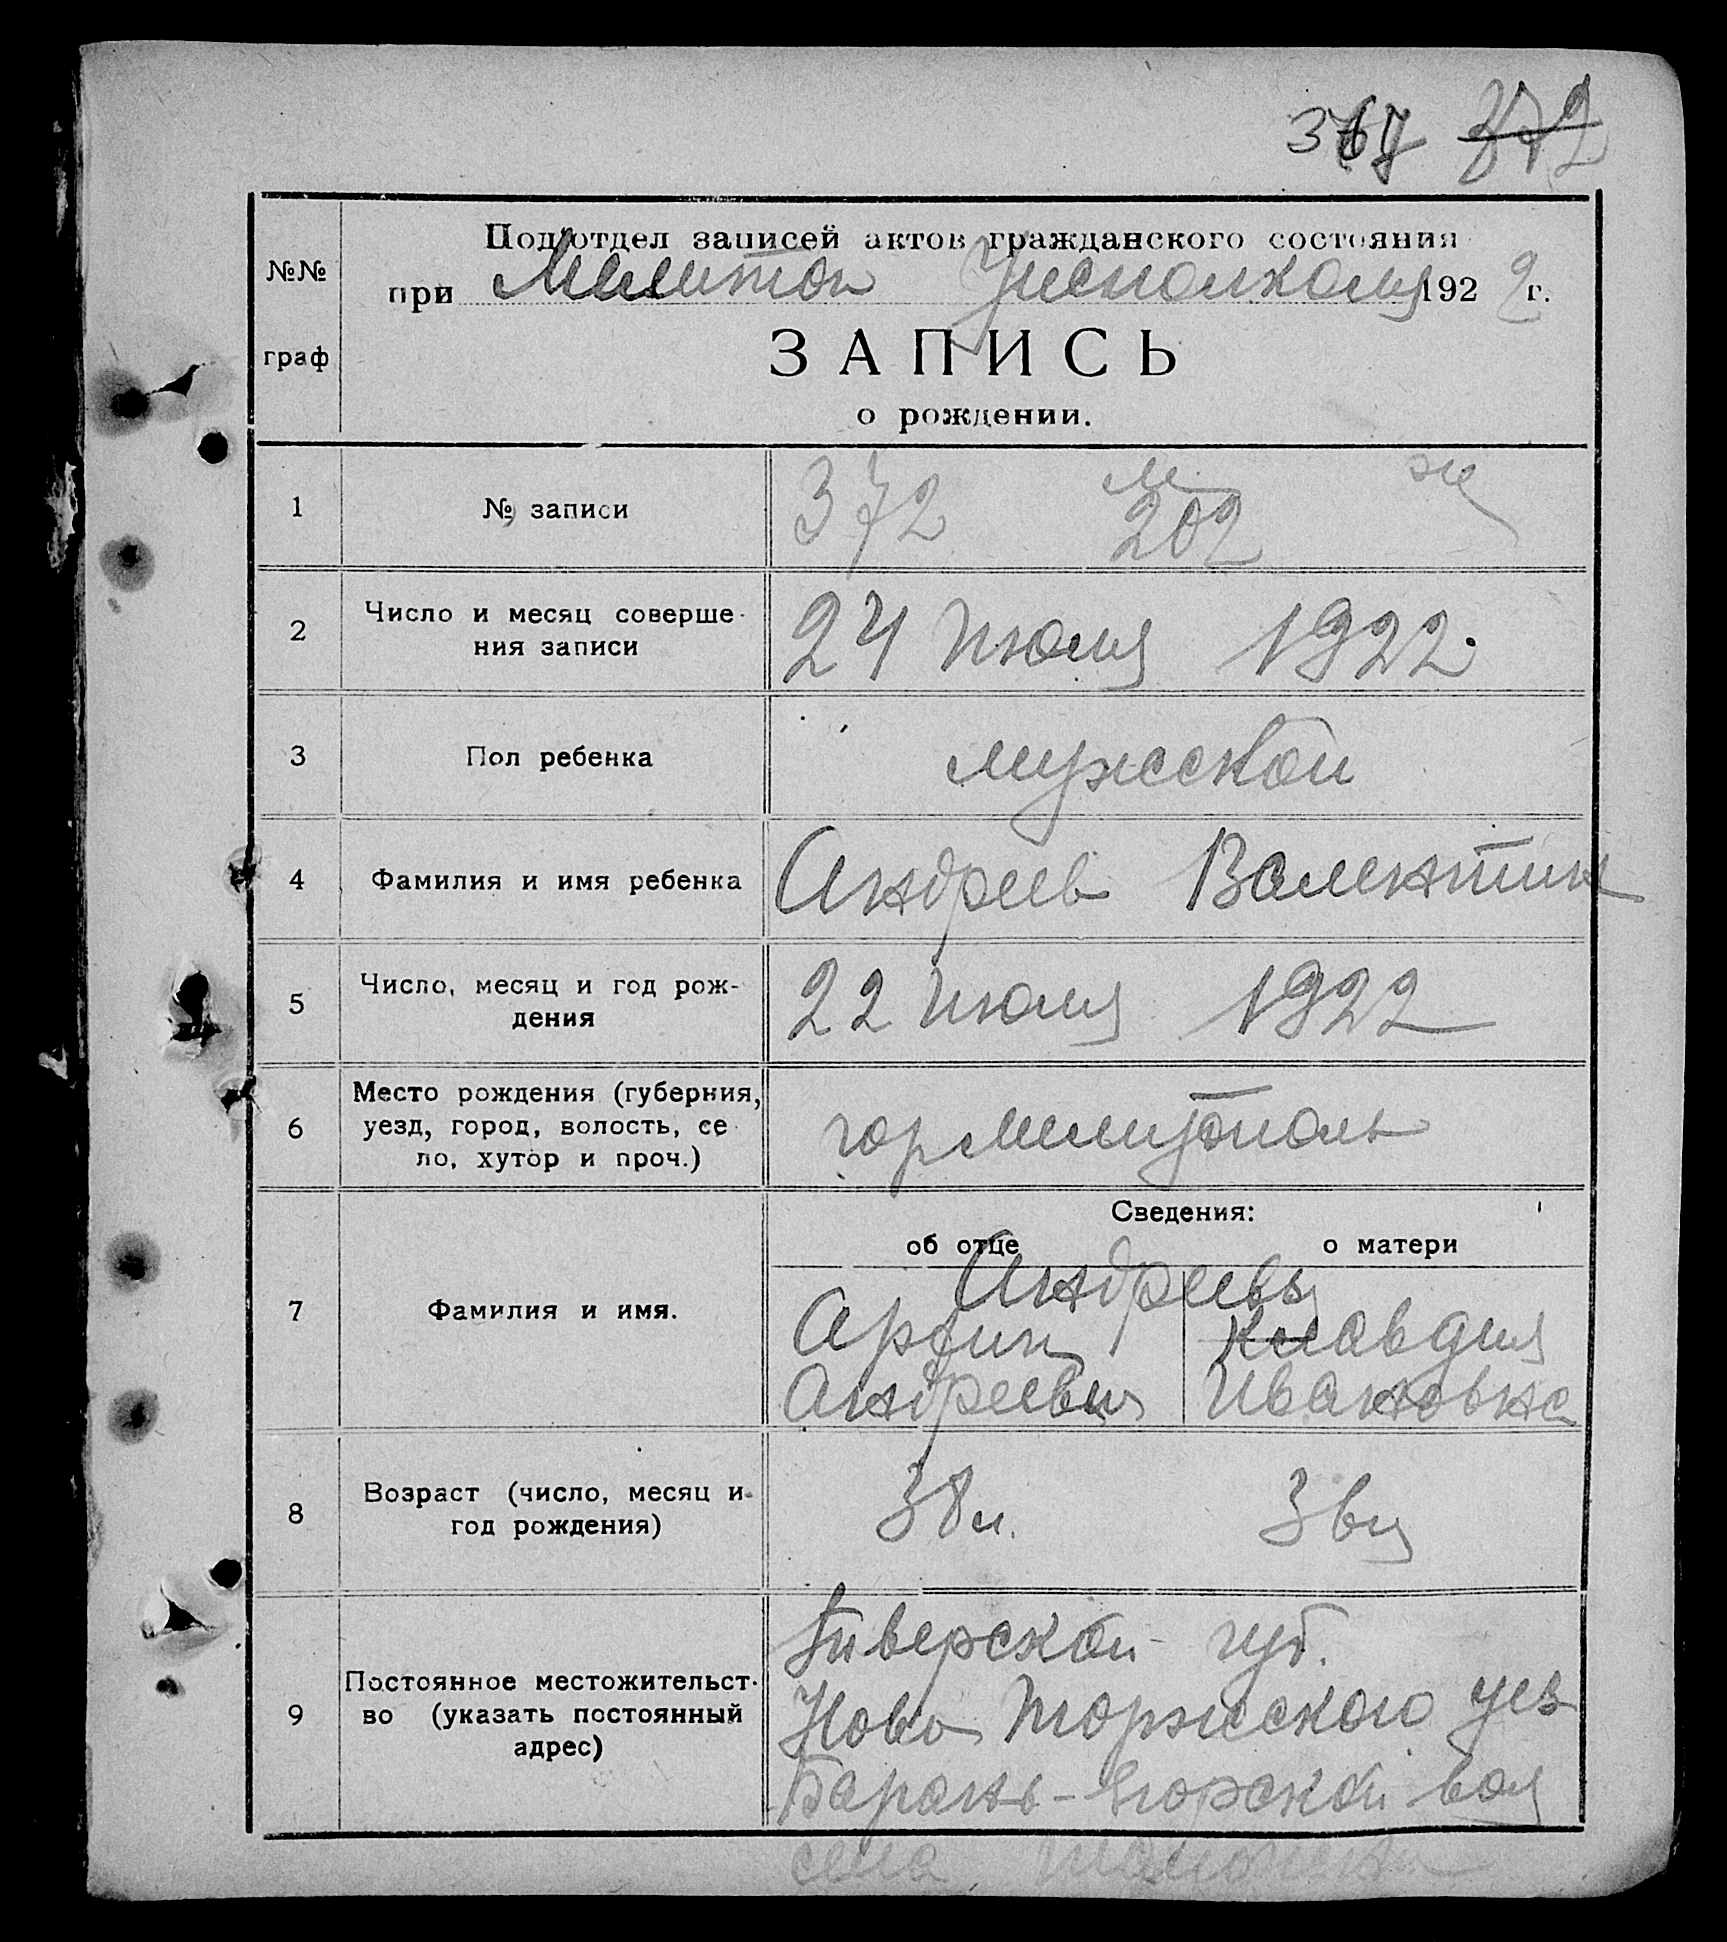 367 372
№№ граф
Подотдел записей актов гражданского состояния
при Мелитоп Уисполкоме 1922 г.
ЗАПИСЬ
о рождении.
1 № записи 372 м 202 ж
2 Число и месяц соверше-
ния записи 24 Июля 1922.
3 Пол ребенка мужской
4 Фамилия и имя ребенка Андреев Валентин
5 Число, месяц и год рож-
дения 22 Июля 1922
6 Место рождения (губерния,
уезд, город, волость, се-
ло, хутор и проч.) гор Мелитополь
Сведения:
об отце о матери
7 Фамилия и имя. Андреевы
Клавдия
Андреевич Ивановна
8 Возраст (число, месяц и
год рождения) 38 л.
9 Постоянное местожительст-
во (указать постоянный
адрес)
Тверской губ.
Ново Торжского уез
Барань-Егорской вол
села